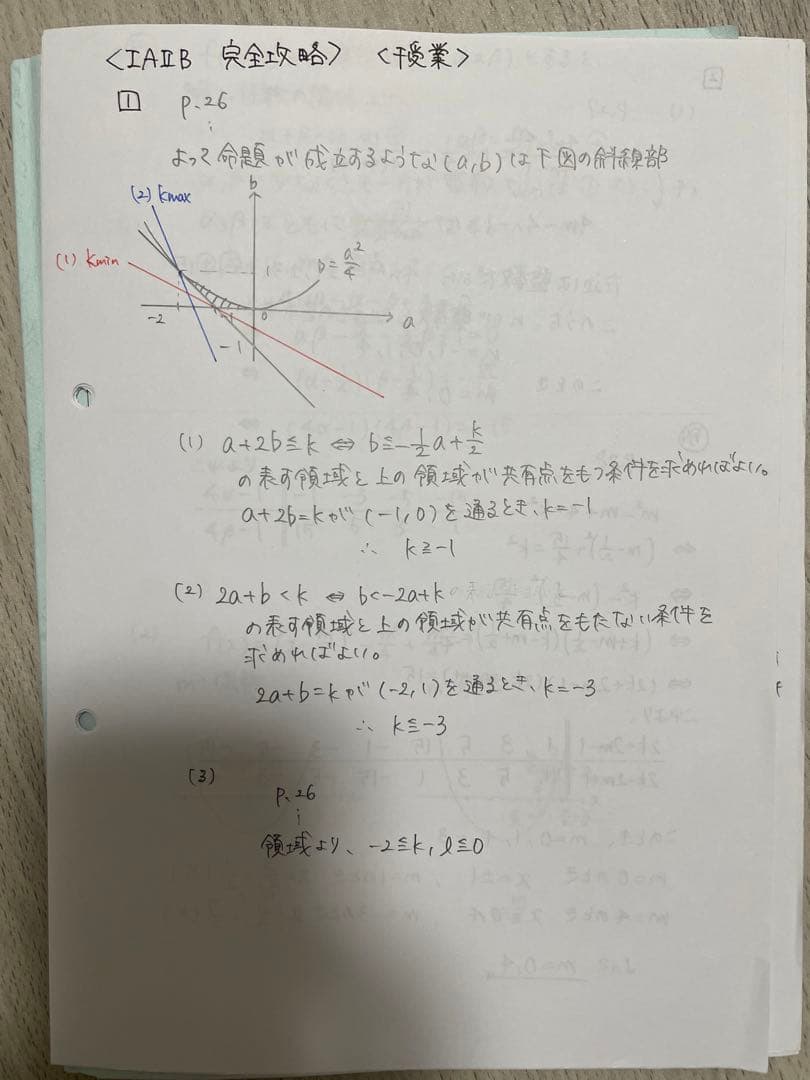 <ⅠAⅡB 完全攻略> <授業>
1 p.26
よって命題が成立するような(a,b)は下図の斜線部
b
(2) kmax
(1) kmin
1
b=a²/4
-2
-1
0
a
-1
(1) a+2b≦k ⇔ b≦-1/2a+k/2
の表す領域と上の領域が共有点をもつ条件を求めればよい。
a+2b=kが(-1,0)を通るとき、k=-1
∴ k≧-1
(2) 2a+b<k ⇔ b<-2a+k
の表す領域と上の領域が共有点をもたない条件を
求めればよい。
2a+b=kが(-2,1)を通るとき、k=-3
∴ k≦-3
(3)
p.26
領域より、-2≦k,l≦0